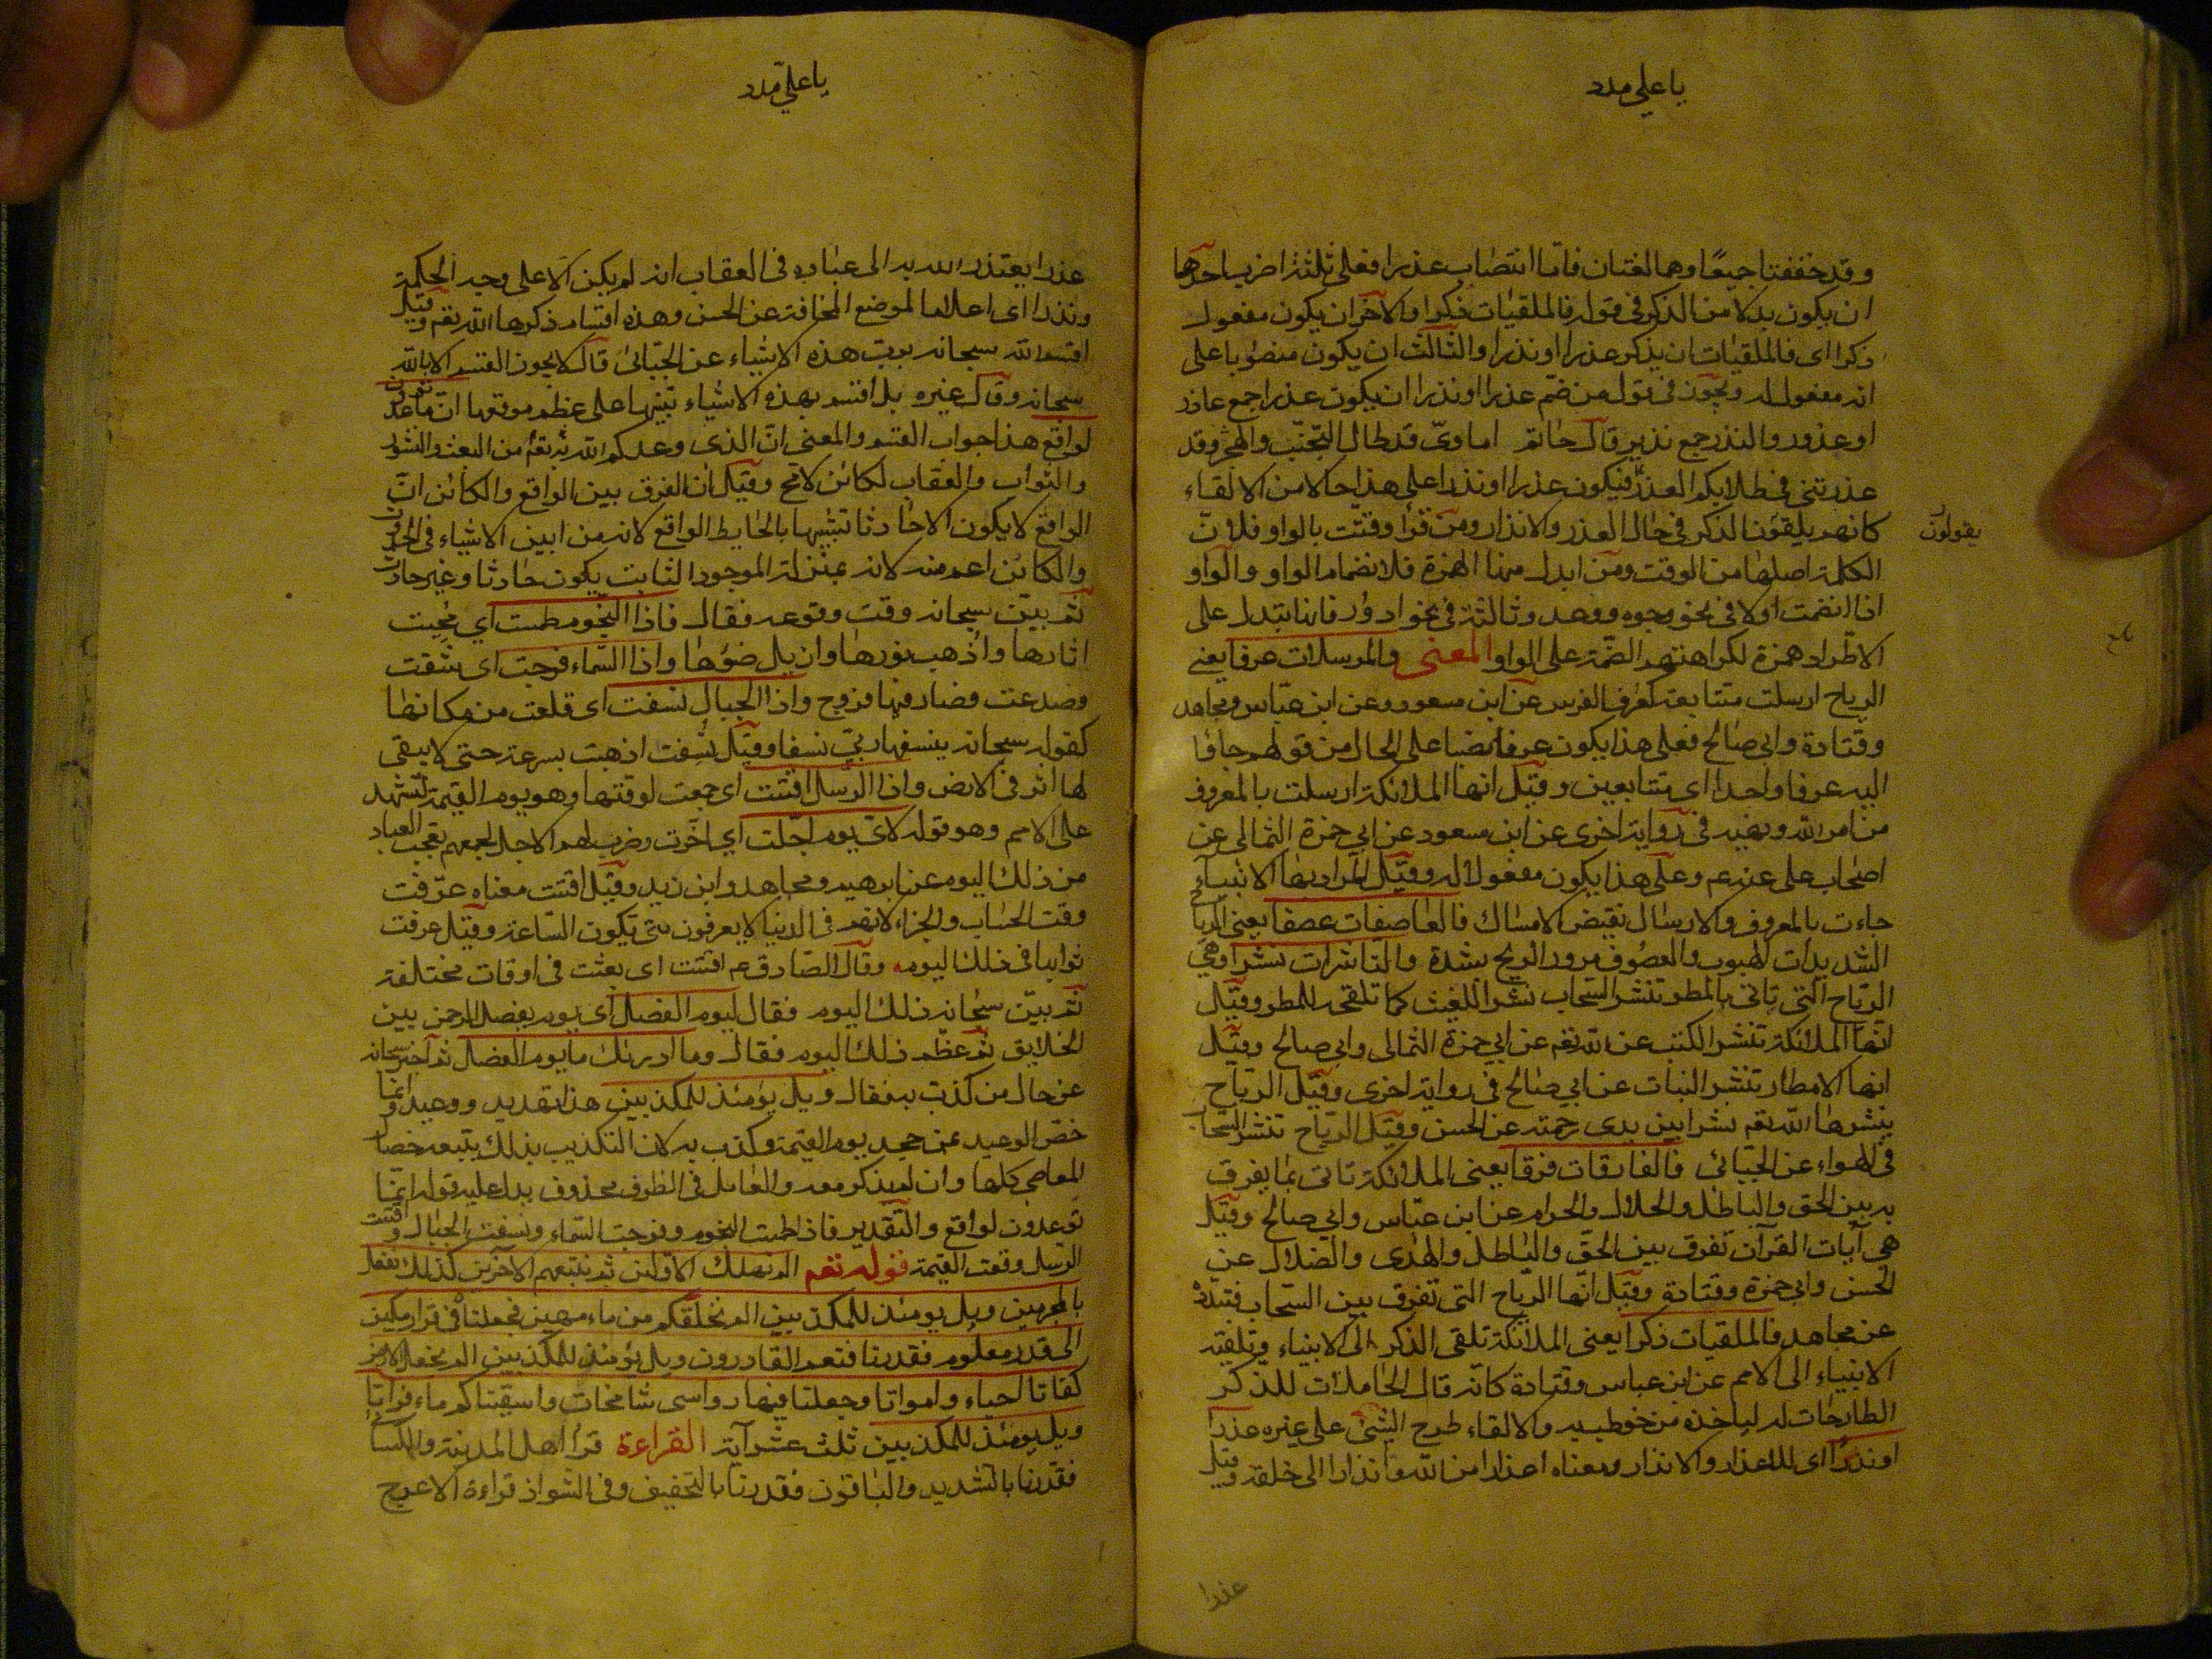 يا علي مدد
وقد خففتا جميعًا وهما لغتان فاما انتصاب عذرا فعلى ثلثة اضرب احدها
ان يكون بدلا من الذكر في قوله فالملقيات ذكرا والآخر ان يكون مفعول
ذكرا اى فالملقيات ان يذكر عذرا او نذرا والثالث ان يكون منصوبا على
انه مفعول له ويجوز في قول من ضم عذرا او نذرا ان يكون عذرا جمع عاذر
او عذور والنذر جمع نذير قال حاتم اماوىّ قد طال التجنّب والهجر وقد
عذرتنى في طلابكم العذر فيكون عذرا او نذرا على هذا حالا من الالقاء
كانهم يلقون الذكر في حال العذر والانذار ومن قرأ وقتت بالواو فلان
يقولون
الكلمة اصلها من الوقت ومن ابدل منها الهمزة فلانضمام الواو والواو
اذا انضمت اولا في نحو وجوه ووعد وثالثة في نحو ادؤر فانها تبدل على
الاطّراد همزة لكراهتهم الضمّة على الواو المعنى والمرسلات عرفا يعنى
الرياح ارسلت متتابعة كعرف الفرس عن ابن مسعود وعن ابن عبّاس ومجاهد
وقتادة وابى صالح فعلى هذا يكون عرفا نصبا على الحال من قولهم جاؤا
اليه عرفا واحدا اى متتابعين وقيل انها الملائكة ارسلت بالمعروف
من امر الله ونهيه في رواية اخرى عن ابن مسعود عن ابي حمزة الثمالى عن
اصحاب على عنه عم وعلى هذا يكون مفعولا له وقيل المراد بها الانبياء
جاءت بالمعروف والارسال نقيض الامساك فالعاصفات عصفا يعنى الرياح
الشديدات الهبوب والعصوف مرور الريح بشدة والناشرات نشرا وهى
الرياح التى تاتى بالمطر تنشر السّحاب نشرا للغيث كما تلقحه للمطر وقيل
انها الملائكة تنشر الكتب عن الله تعم عن ابي حمزة الثمالى وابى صالح وقيل
انها الامطار تنشر النبات عن ابي صالح في رواية اخرى وقيل الرياح
ينشرها الله تعم نشرا بين يدى رحمته عن الحسن وقيل الرياح تنشر السحاب
في الهواء عن الجبّائى فالفارقات فرقا يعنى الملائكة تاتى بما يفرق
به بين الحق والباطل والحلال والحرام عن ابن عبّاس وابى صالح وقيل
هي آيات القرآن تفرق بين الحقّ والباطل والهدى والضلال عن
الحسن وابى حمزة وقتادة وقيل انها الرياح التى تفرق بين السّحاب فتبدده
عن مجاهد فالملقيات ذكرا يعنى الملائكة تلقى الذكر الى الانبياء وتلقيه
الانبياء الى الامم عن ابن عباس وقتادة كانه قال الحاملات للذكر
الطارحات له لياخذه من خوطب به والالقاء طرح الشئ على غيره عذرا
او نذرا اى للاعذار والانذار ومعناه اعذارا من الله وانذارا الى خلقه وقيل
عذرا
يا علىّ مدد
عذرا يعتذر الله به الى عباده في العقاب انه لم يكن الا على وجه الحكمة
ونذرا اى اعلاما لموضع المخافة عن الحسن وهذه اقسام ذكرها الله تعم وقيل
اقسم الله سبحانه برب هذه الاشياء عن الجبّائى قال لا يجوز القسم الا بالله
سبحانه وقال غيره بل اقسم بهذه الاشياء تنبيها على عظم موقعها انّ ما توعدون
لواقع هذا جواب القسم والمعنى انّ الذى وعدكم الله به تعم من البعث والنشور
والثواب والعقاب لكائن لا مح وقيل ان الفرق بين الواقع والكائن انّ
الواقع لا يكون الا حادثا تشبيها بالحايط الواقع لانه من ابين الاشياء في الحدوث
والكائن اعم منه لانه بمنزلة الموجود الثابت يكون حادثا وغير حادث
ثم بيّن سبحانه وقت وقوعه فقال فاذا النّجوم طمست اي مُحِيت
اثارها واذهب نورها وازيل ضوءها واذا السّماء فرجت اى شقّت
وصدعت فصار فيها فروج واذا الجبال نسفت اى قلعت من مكانها
كقوله سبحانه ينسفها ربّى نسفا وقيل نسفت اذهبت بسرعة حتى لا يبقى
لها اثر في الارض واذا الرّسل اقتت اى جمعت لوقتها وهو يوم القيمة لتشهد
على الامم وهو قوله لاىّ يوم اجّلت اي اخّرت وضرب لهم الاجل لجمعهم تعجب العباد
من ذلك اليوم عن ابرهيم ومجاهد وابن زيد وقيل اقتت معناه عرّفت
وقت الحساب والجزاء لانهم في الدنيا لا يعرفون متى تكون السّاعة وقيل عرفت
ثوابها في ذلك اليوم وقال الصّادق عم اقتت اى بعثت في اوقات مختلفة
ثم بيّن سبحانه ذلك اليوم فقال ليوم الفصل اى يوم يفصل الرحمن بين
الخلايق ثم عظّم ذلك اليوم فقال وما ادرىك ما يوم الفصل ثم اخبر سبحانه
عن حال من كذب به فقال ويل يومئذ للمكذبين هذا تهديد ووعيد وانما
خصّ الوعيد بمن جحد يوم القيمة وكذب به لان التكذيب بذلك يتبعه خصال
المعاصى كلها وان لم يذكر معه والعامل في الظرف محذوف يدل عليه قوله انما
توعدون لواقع والتقدير فاذا طمست النجوم وفرجت السّماء ونسفت الجبال واقتت
الرّسل وقعت القيمة قوله تعم الم نهلك الاوّلين ثم نتبعهم الآخرين كذلك نفعل
بالمجرمين ويل يومئذ للمكذبين الم نخلقكم من ماء مهين فجعلناه في قرار مكين
الى قدر معلوم فقدرنا فنعم القادرون ويل يومئذ للمكذبين الم نجعل الارض
كفاتا احياء وامواتا وجعلنا فيها رواسى شامخات واسقيناكم ماء فراتا
ويل يومئذ للمكذبين ثلث عشر آية القراءة قرأ اهل المدينة والكسائى
فقدّرنا بالتشديد والباقون فقدرنا بالتخفيف وفي الشّواذ قراءة الاعرج